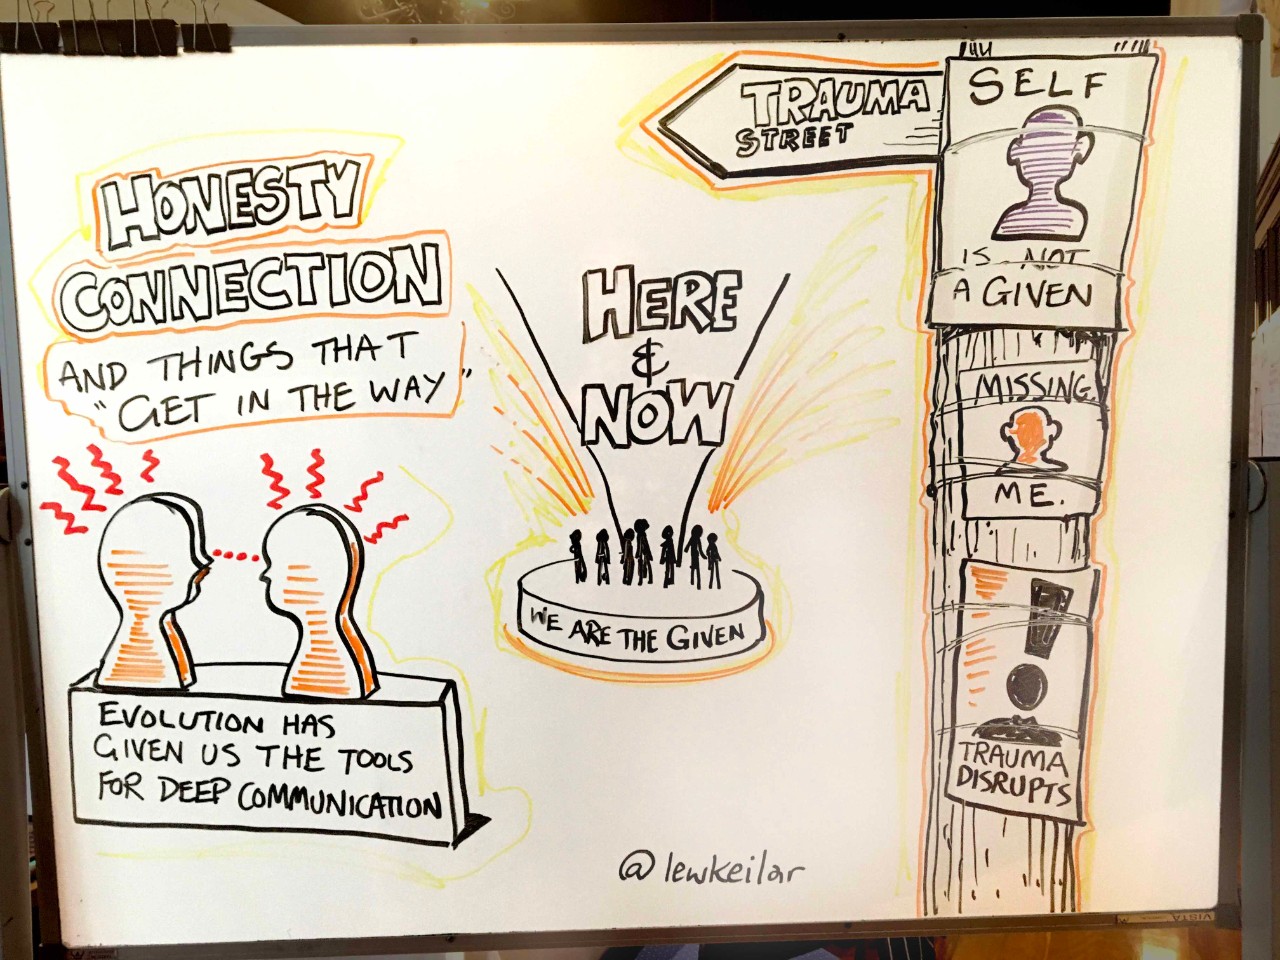 HONESTY
CONNECTION
AND THINGS THAT
"GET IN THE WAY"
EVOLUTION HAS
GIVEN US THE TOOLS
FOR DEEP COMMUNICATION
HERE
&
NOW
WE ARE THE GIVEN
@lewkeilar
TRAUMA
STREET
SELF
IS NOT
A GIVEN
MISSING.
ME.
!
TRAUMA
DISRUPTS
VISTA